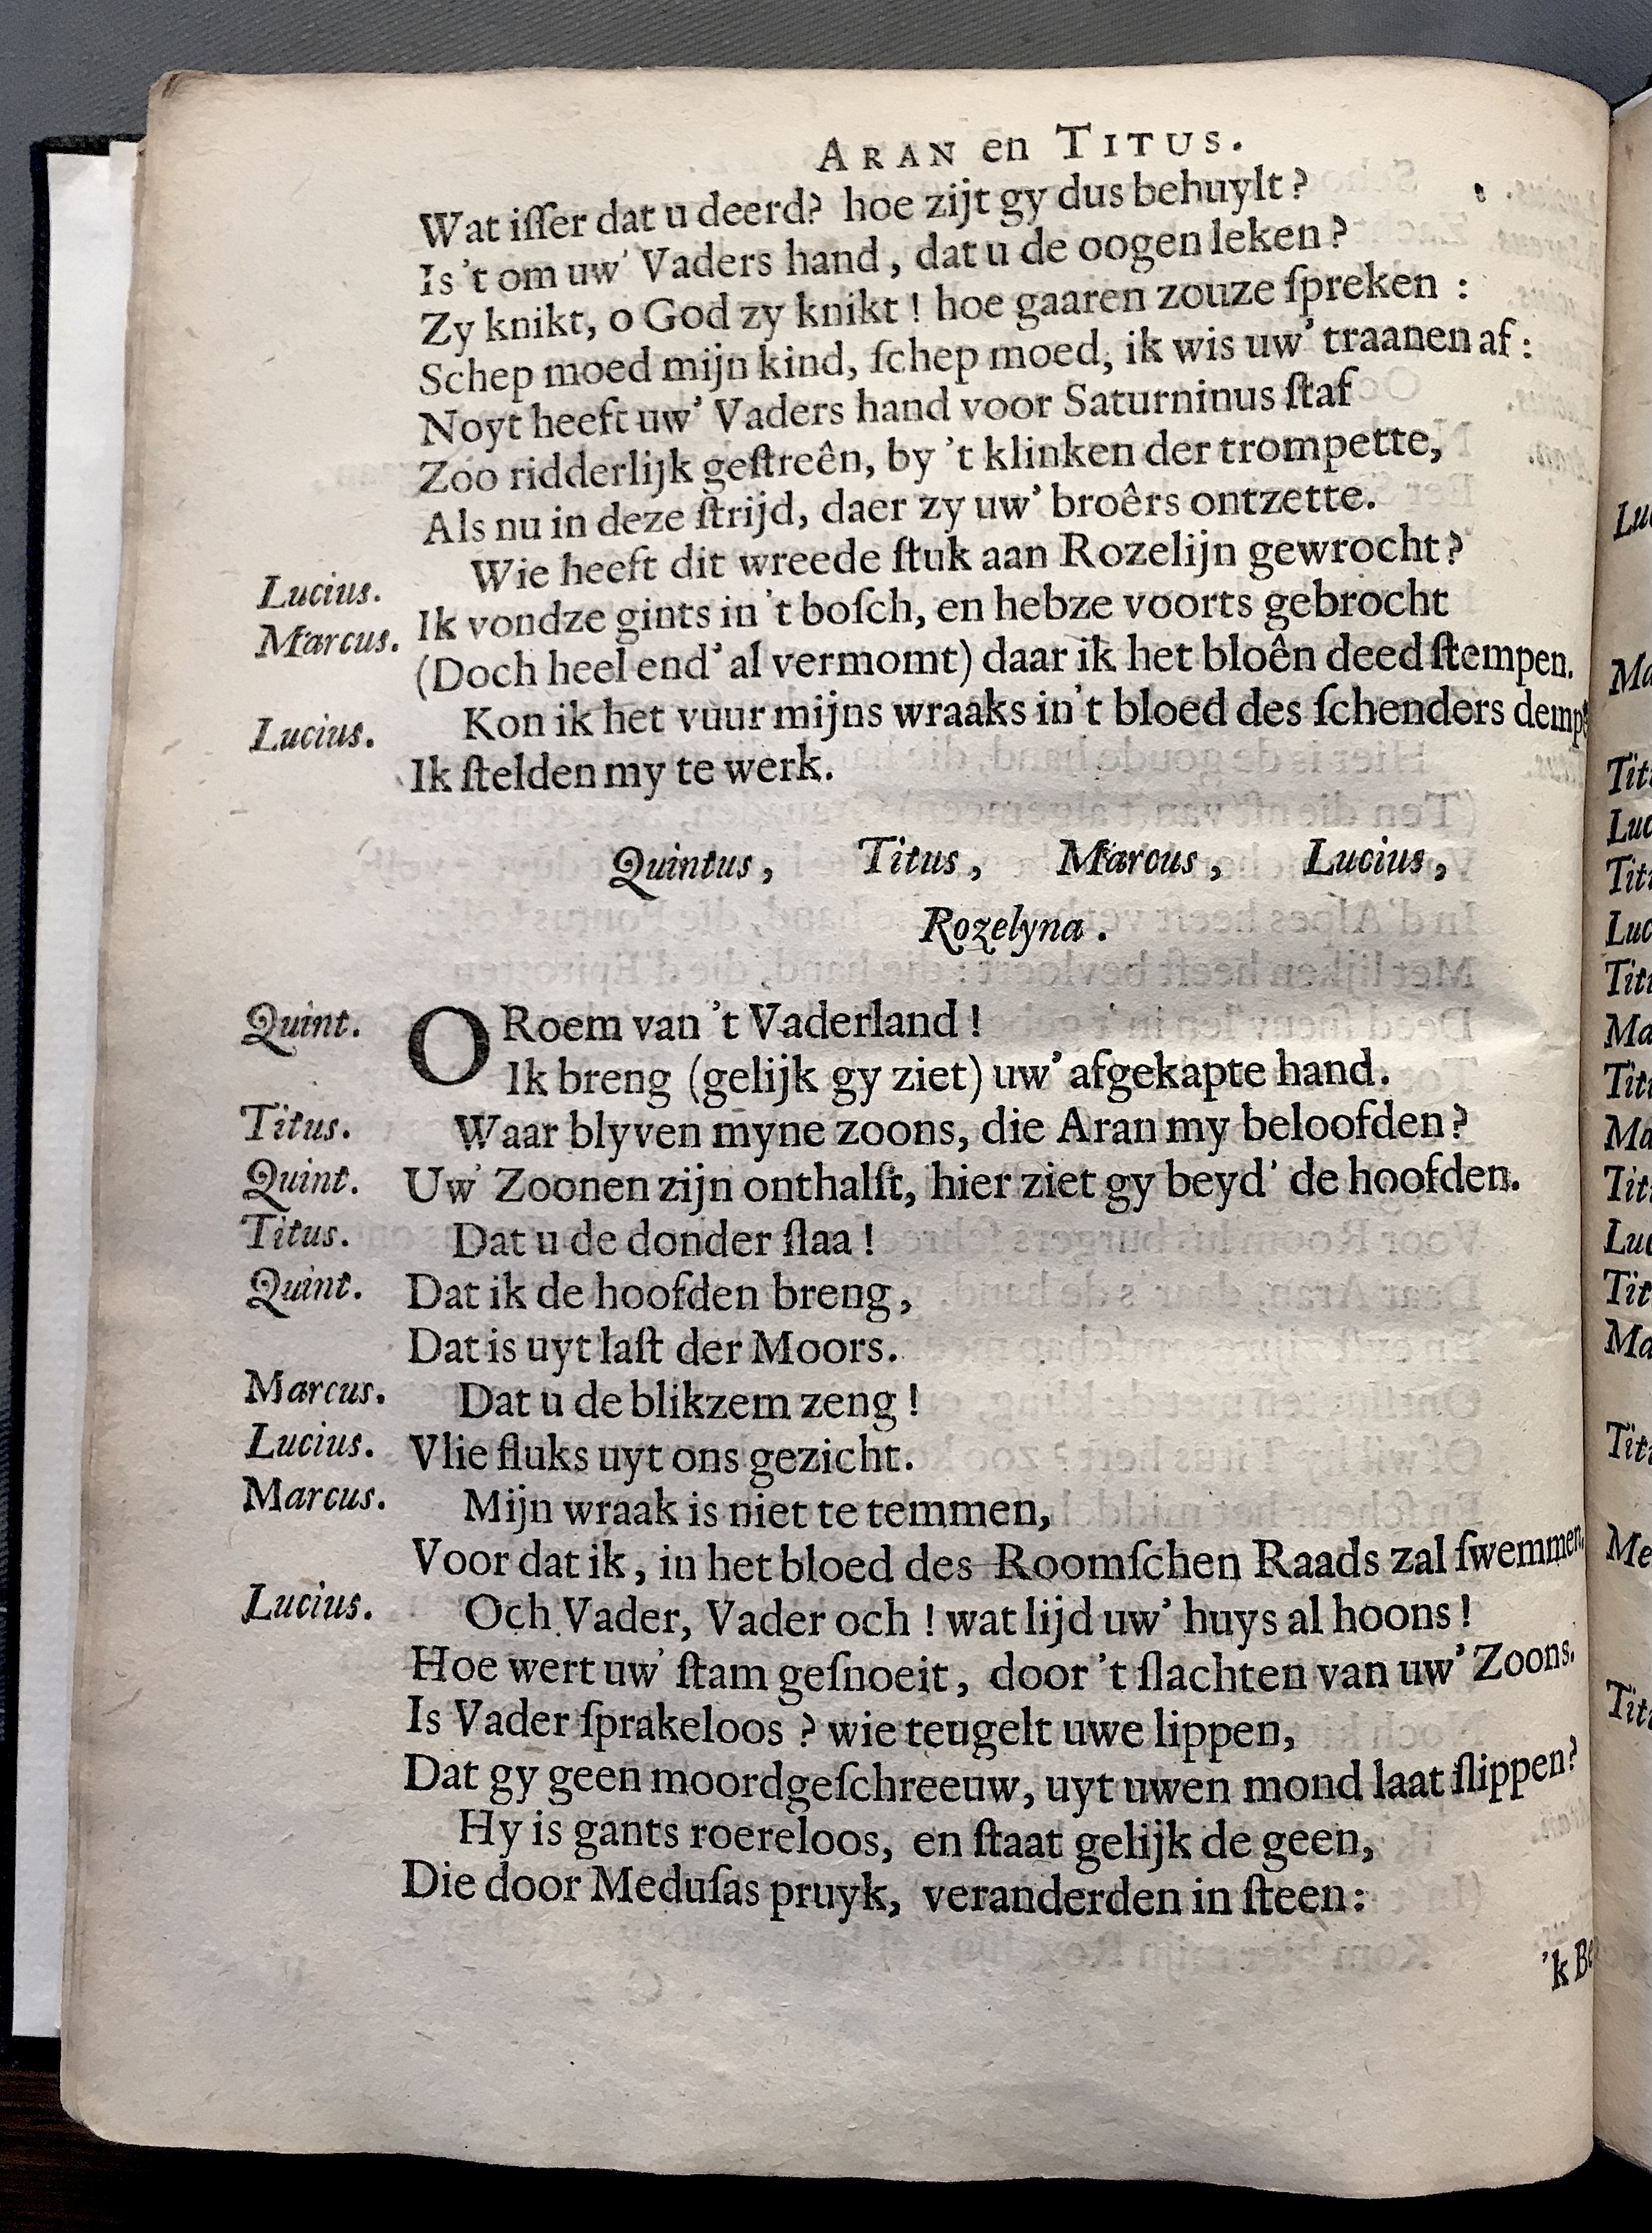 ARAN en TITUS.
Wat iſſer dat u deerd? hoe zijt gy dus behuylt?
Is 't om uw' Vaders hand, dat u de oogen leken?
Zy knikt, o God zy knikt! hoe gaaren zouze ſpreken:
Schep moed mijn kind, ſchep moed, ik wis uw' traanen af:
Noyt heeft uw' Vaders hand voor Saturninus ſtaf
Zoo ridderlijk geſtreên, by 't klinken der trompette,
Als nu in deze ſtrijd, daer zy uw' broêrs ontzette.
Lucius. Wie heeft dit wreede ſtuk aan Rozelijn gewrocht?
Marcus. Ik vondze gints in 't boſch, en hebze voorts gebrocht
(Doch heel end' al vermomt) daar ik het bloên deed ſtempen.
Lucius. Kon ik het vuur mijns wraaks in't bloed des ſchenders
Ik ſtelden my te werk.
Quintus, Titus, Marcus, Lucius,
Rozelyna.
Quint. O Roem van 't Vaderland!
Ik breng (gelijk gy ziet) uw' afgekapte hand.
Titus. Waar blyven myne zoons, die Aran my beloofden?
Quint. Uw' Zoonen zijn onthalſt, hier ziet gy beyd' de hoofden.
Titus. Dat u de donder ſlaa!
Quint. Dat ik de hoofden breng,
Dat is uyt laſt der Moors.
Marcus. Dat u de blikzem zeng!
Lucius. Vlie fluks uyt ons gezicht.
Marcus. Mijn wraak is niet te temmen,
Voor dat ik, in het bloed des Roomſchen Raads zal ſwemmen.
Lucius. Och Vader, Vader och! wat lijd uw' huys al hoons!
Hoe wert uw' ſtam geſnoeit, door 't ſlachten van uw' Zoons.
Is Vader ſprakeloos? wie teugelt uwe lippen,
Dat gy geen moordgeſchreeuw, uyt uwen mond laat ſlippen?
Hy is gants roereloos, en ſtaat gelijk de geen,
Die door Meduſas pruyk, veranderden in ſteen:
'k